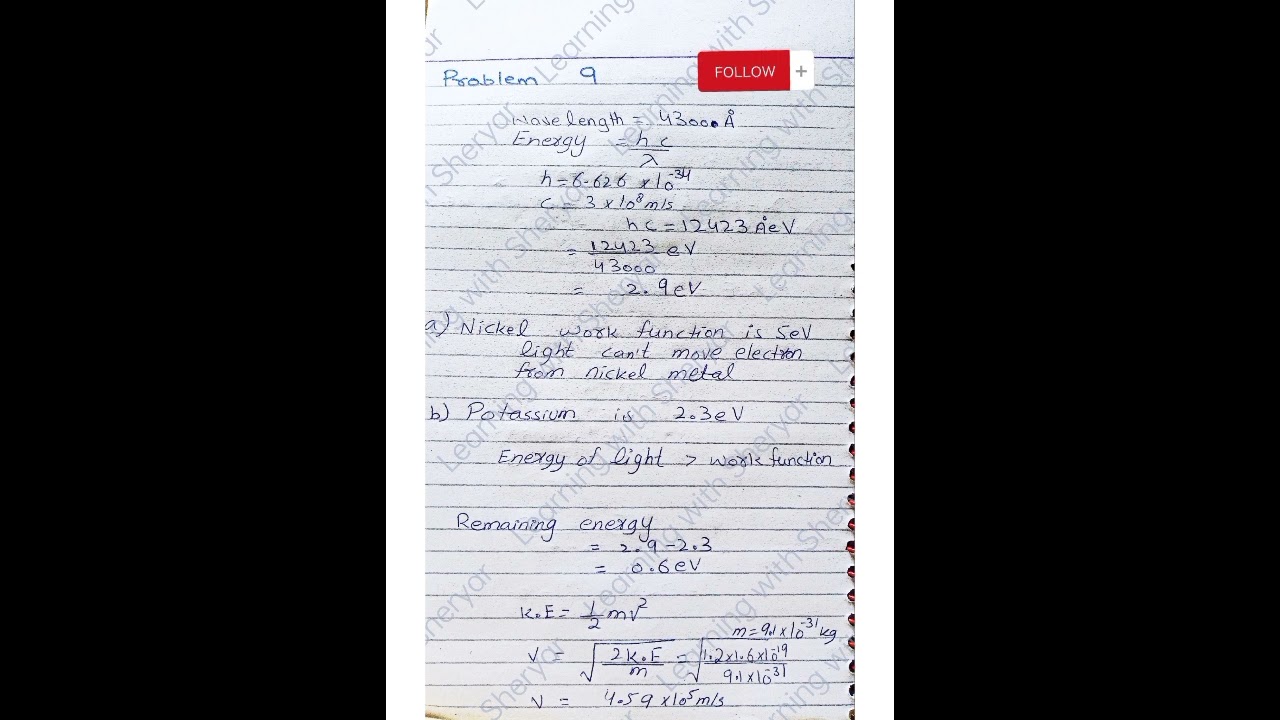 Problem 9
FOLLOW +
Wavelength = 43000 Å
Energy = hc
λ
h = 6.626 × 10⁻³⁴
c = 3 × 10⁸ m/s
hc = 12423 Å eV
= 12423 eV
43000
= 2.9 eV
a) Nickel work function is 5eV
light can't move electron
from nickel metal
b) Potassium is 2.3eV
Energy of light > work function
Remaining energy
= 2.9 - 2.3
= 0.6 eV
K.E = 1/2 mv²
m = 9.1 × 10⁻³¹ kg
v = √(2K.E/m) = √(1.2×1.6×10⁻¹⁹/9.1×10⁻³¹)
v = 4.59 × 10⁵ m/s
Learning with Sheryar